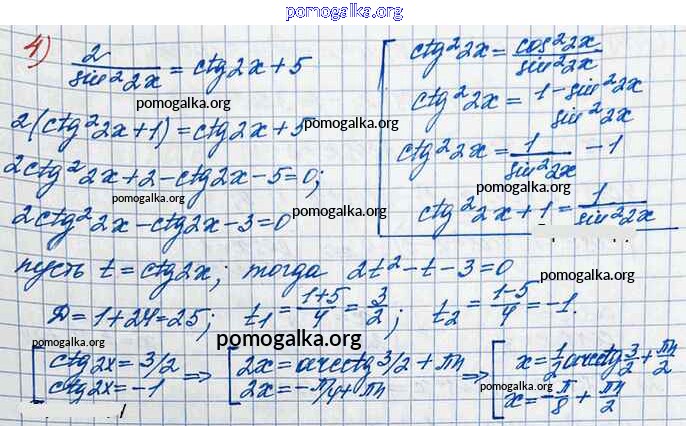 pomogalka.org
4) 2/sin²2x = ctg2x + 5
pomogalka.org
2(ctg²2x+1) = ctg2x + 5
pomogalka.org
2ctg²2x+2-ctg2x-5=0;
pomogalka.org
2ctg²2x-ctg2x-3=0
pomogalka.org
ctg²2x = cos²2x/sin²2x
pomogalka.org
ctg²2x = 1-sin²2x/sin²2x
ctg²2x = 1/sin²2x - 1
pomogalka.org
ctg²2x+1 = 1/sin²2x
пусть t = ctg2x; тогда 2t²-t-3=0
pomogalka.org
D=1+24=25; t₁ = 1+5/4 = 3/2; t₂ = 1-5/4 = -1.
pomogalka.org
[ctg2x = 3/2 => [2x = arcctg 3/2 + πn => [x = 1/2 arcctg 3/2 + πn/2
ctg2x = -1 2x = -π/4 + πn x = -π/8 + πn/2
pomogalka.org pomogalka.org pomogalka.org